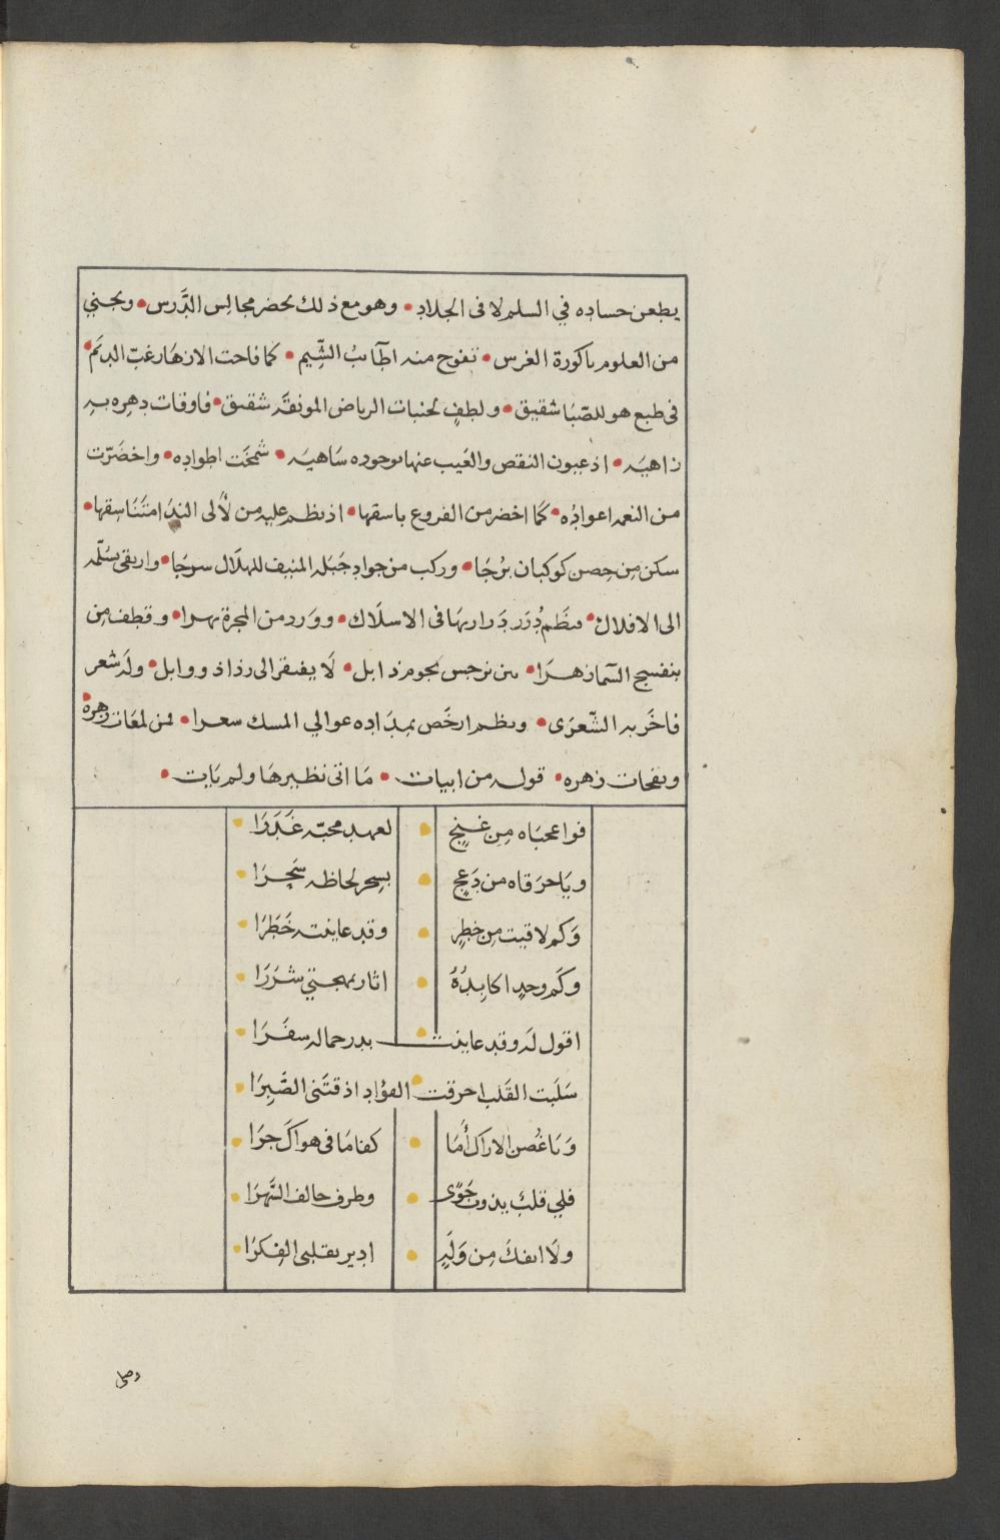 يطعن حساده في السلم لا فى الجلاد • وهو مع ذلك يحضر مجالس الدَّرس • ويجني
من العلوم باكورة الغرس • تفوح منه اطآئب الشِّيم • كما فاحت الازهَار غبّ الديَم •
فى طبع هو للصّبَا شقيق • ولطفٍ لجنبات الرياض المونقَه شقيق • فاوقات دهره به
زاهيَه • اذ عيون النقص والعَيب عنها بوجوده سَاهيَه • شمخَت اطواده • واخضَرّت
من النعم اعوادُه • كَما اخضر من الفروع باسقها • اذ نظم عليه من لآلى الندَا متَنَاسقها •
سكن مِن حصن كوكبان برُجَا • وركب من جواد جَبَله المنيف للهلَال سرجَا • وارتقى بسُلّمه
الى الافلاك • فنظَم دُرَر دَراريهَا فى الاسلَاك • ووَرد من المجرة نهرا • وقطف مِن
بنفسج السّما زهرَا • من نرجس نجوم ذابل • لَا يفتقر الى رذاذ ووابل • ولَه شعر
فاخَر به الشّعرَى • ونظم ارخَص بمدَاده عوالي المسك سعرا • فمن لمعَات زهره •
ونفحات زهره • قوله من ابيات • مَا اتى نظيرهَا ولم يَات •
فواعجبَاه مِن غنجٍ • لعهد محبّه غَدَرَا •
ويَاحرَقاه من دَعجٍ • بسحر لحاظه سَحِرَا •
وَكم لاقيت مِن خطرٍ • وقد عاينته خَطَرَا •
وكَم وجدٍ اكابِدُهُ • اثار بمهجتي شرَرَا •
اقول لَه وقد عاينت • بدر جماله سفَرَا •
سَلَبت القَلب احرقت • الفؤاد اذقتَنى الصَّبِرَا •
وَيَا غُصن الاراك أَمَا • كفا مَا فى هواكَ جرَا •
فلي قلبٌ يذوب جَوًى • وطرف حالف السَّهرَا •
ولَا انفكَ مِن وَلَهٍ • ادير بقلبى الفِكرَا •